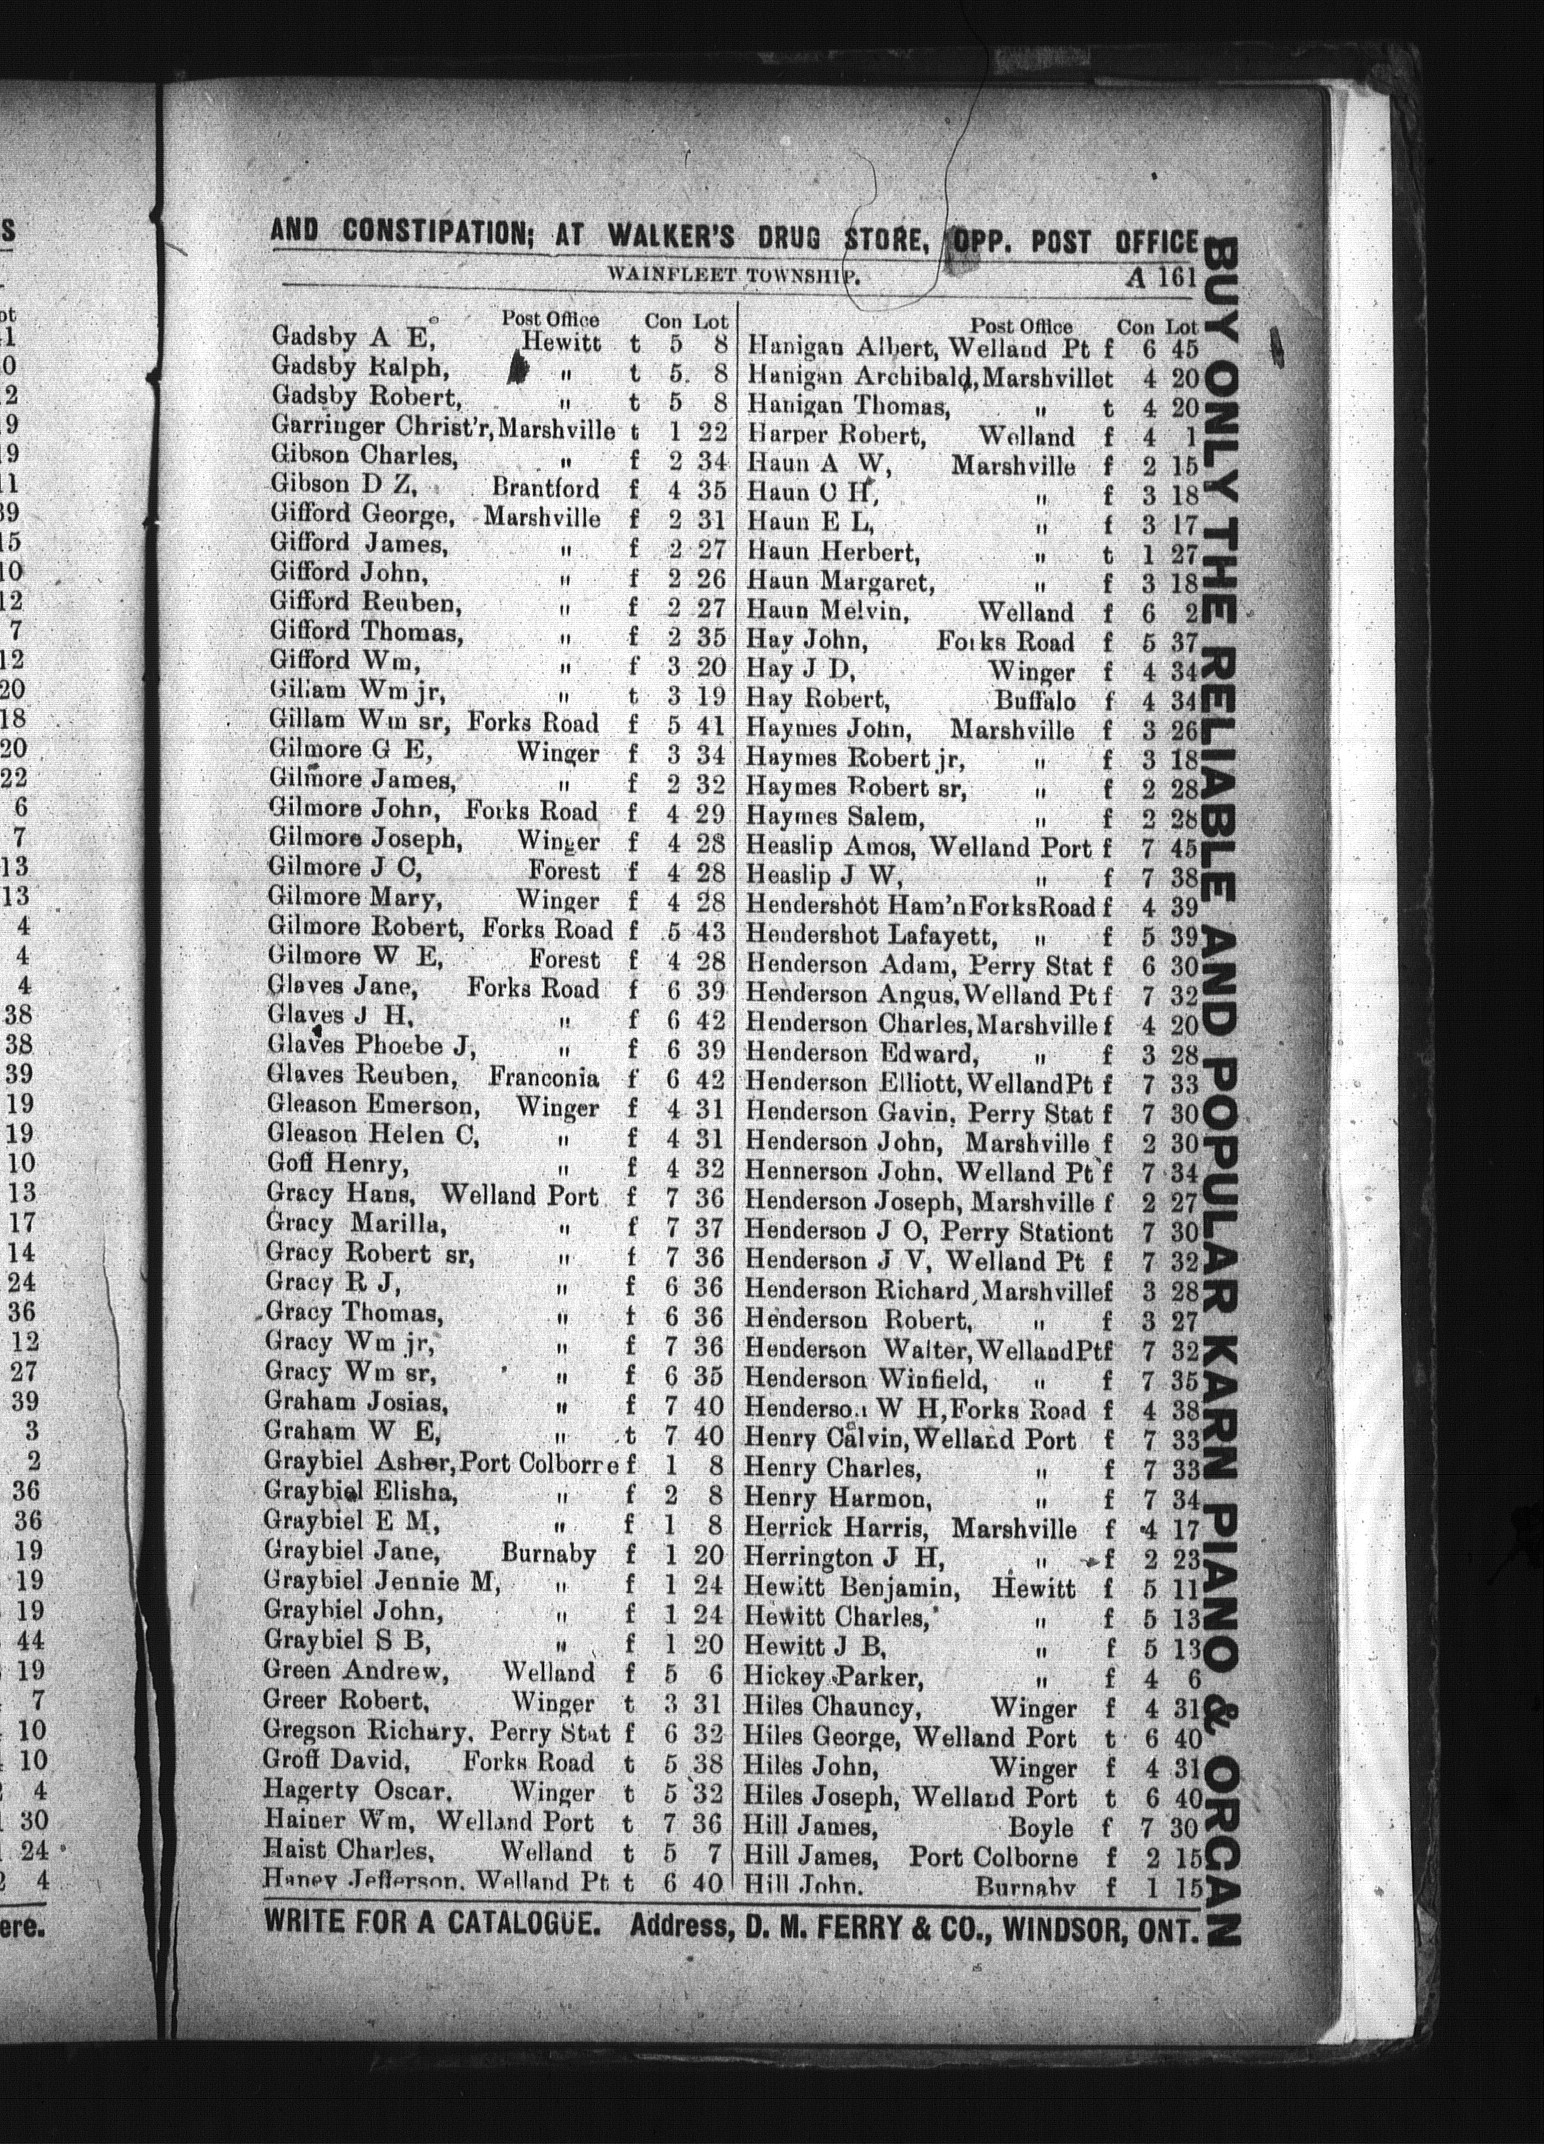 AND CONSTIPATION; AT WALKER'S DRUG STORE, OPP. POST OFFICE
WAINFLEET TOWNSHIP. A 161
Post Office Con Lot
Gadsby A E, Hewitt t 5 8
Gadsby Ralph, " t 5 8
Gadsby Robert, " t 5 8
Garringer Christ'r, Marshville t 1 22
Gibson Charles, " f 2 34
Gibson D Z, Brantford f 4 35
Gifford George, Marshville f 2 31
Gifford James, " f 2 27
Gifford John, " f 2 26
Gifford Reuben, " f 2 27
Gifford Thomas, " f 2 35
Gifford Wm, " f 3 20
Gillam Wm jr, " t 3 19
Gillam Wm sr, Forks Road f 5 41
Gilmore G E, Winger f 3 34
Gilmore James, " f 2 32
Gilmore John, Forks Road f 4 29
Gilmore Joseph, Winger f 4 28
Gilmore J C, Forest f 4 28
Gilmore Mary, Winger f 4 28
Gilmore Robert, Forks Road f 5 43
Gilmore W E, Forest f 4 28
Glaves Jane, Forks Road f 6 39
Glaves J H, " f 6 42
Glaves Phoebe J, " f 6 39
Glaves Reuben, Franconia f 6 42
Gleason Emerson, Winger f 4 31
Gleason Helen C, " f 4 31
Goff Henry, " f 4 32
Gracy Hans, Welland Port f 7 36
Gracy Marilla, " f 7 37
Gracy Robert sr, " f 7 36
Gracy R J, " f 6 36
Gracy Thomas, " t 6 36
Gracy Wm jr, " f 7 36
Gracy Wm sr, " f 6 35
Graham Josias, " f 7 40
Graham W E, " t 7 40
Graybiel Asher, Port Colborne f 1 8
Graybiel Elisha, " f 2 8
Graybiel E M, " f 1 8
Graybiel Jane, Burnaby f 1 20
Graybiel Jennie M, " f 1 24
Graybiel John, " f 1 24
Graybiel S B, " f 1 20
Green Andrew, Welland f 5 6
Greer Robert, Winger t 3 31
Gregson Richary, Perry Stat f 6 32
Groff David, Forks Road t 5 38
Hagerty Oscar, Winger t 5 32
Hainer Wm, Welland Port t 7 36
Haist Charles, Welland t 5 7
Haney Jefferson, Welland Pt t 6 40
Post Office Con Lot
Hanigan Albert, Welland Pt f 6 45
Hanigan Archibald, Marshville t 4 20
Hanigan Thomas, " t 4 20
Harper Robert, Welland f 4 1
Haun A W, Marshville f 2 15
Haun C H, " f 3 18
Haun E L, " f 3 17
Haun Herbert, " t 1 27
Haun Margaret, " f 3 18
Haun Melvin, Welland f 6 2
Hay John, Forks Road f 5 37
Hay J D, Winger f 4 34
Hay Robert, Buffalo f 4 34
Haymes John, Marshville f 3 26
Haymes Robert jr, " f 3 18
Haymes Robert sr, " f 2 28
Haymes Salem, " f 2 28
Heaslip Amos, Welland Port f 7 45
Heaslip J W, " f 7 38
Hendershot Ham'n Forks Road f 4 39
Hendershot Lafayett, " f 5 39
Henderson Adam, Perry Stat f 6 30
Henderson Angus, Welland Pt f 7 32
Henderson Charles, Marshville f 4 20
Henderson Edward, " f 3 28
Henderson Elliott, Welland Pt f 7 33
Henderson Gavin, Perry Stat f 7 30
Henderson John, Marshville f 2 30
Hennerson John, Welland Pt f 7 34
Henderson Joseph, Marshville f 2 27
Henderson J O, Perry Station t 7 30
Henderson J V, Welland Pt f 7 32
Henderson Richard, Marshville f 3 28
Henderson Robert, " f 3 27
Henderson Walter, Welland Pt f 7 32
Henderson Winfield, " f 7 35
Henderson W H, Forks Road f 4 38
Henry Calvin, Welland Port f 7 33
Henry Charles, " f 7 33
Henry Harmon, " f 7 34
Herrick Harris, Marshville f 4 17
Herrington J H, " f 2 23
Hewitt Benjamin, Hewitt f 5 11
Hewitt Charles, " f 5 13
Hewitt J B, " f 5 13
Hickey Parker, " f 4 6
Hiles Chauncy, Winger f 4 31
Hiles George, Welland Port t 6 40
Hiles John, Winger f 4 31
Hiles Joseph, Welland Port t 6 40
Hill James, Boyle f 7 30
Hill James, Port Colborne f 2 15
Hill John, Burnaby f 1 15
WRITE FOR A CATALOGUE. Address, D. M. FERRY & CO., WINDSOR, ONT.
BUY ONLY THE RELIABLE AND POPULAR KARN PIANO & ORGAN